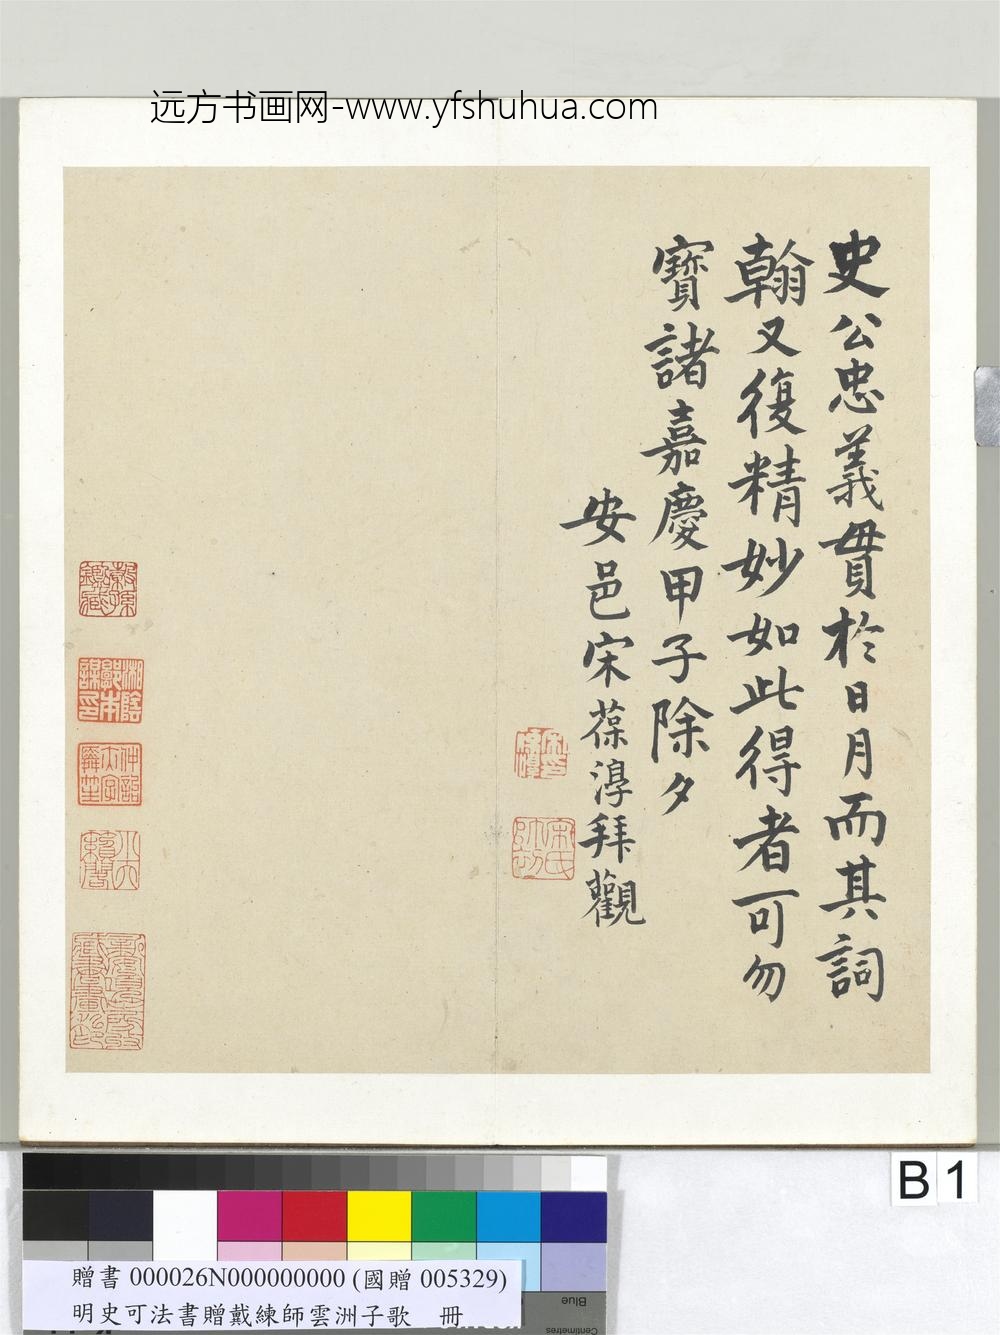 远方书画网-www.yfshuhua.com
史公忠義貫於日月而其詞
翰又復精妙如此得者可勿
寶諸嘉慶甲子除夕
安邑宋葆淳拜觀
B1
贈書 000026N000000000 (國贈 005329)
明史可法書贈戴練師雲洲子歌 冊
Blue
Centimetres